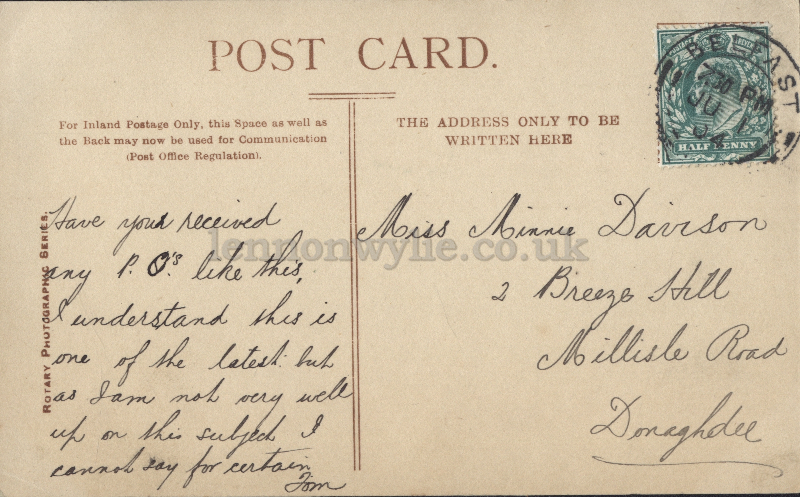 POST CARD.
For Inland Postage Only, this Space as well as
the Back may now be used for Communication
(Post Office Regulation).
THE ADDRESS ONLY TO BE
WRITTEN HERE
BELFAST
7.30 PM
JU 1
04
HALF PENNY
ROTARY PHOTOGRAPHIC SERIES.
Have you received
any P. O's. like this,
I understand this is
one of the latest but
as I am not very well
up on this subject I
cannot say for certain
Tom
Miss Minnie Davison
2 Breeze Hill
Millisle Road
Donaghdee
lennonwylie.co.uk